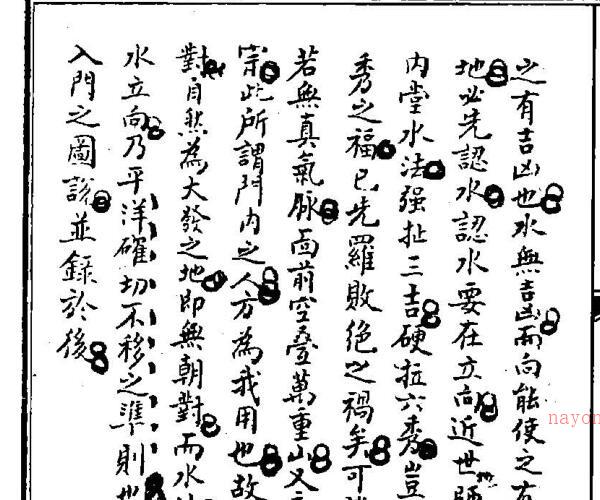 之有吉凶也水無吉凶而向能使之有
地必先認水認水要在立向近世師
內堂水法强扯三吉硬拉六秀豈
秀之福已先羅敗絕之禍矣可
若無真氣脉面前空叠萬重山又
宗此所謂門內之人方為我用也故
對自然為大發之地即無朝對而水
水立向乃平洋確切不移之準則也
入門之圖說並錄於後
nayon